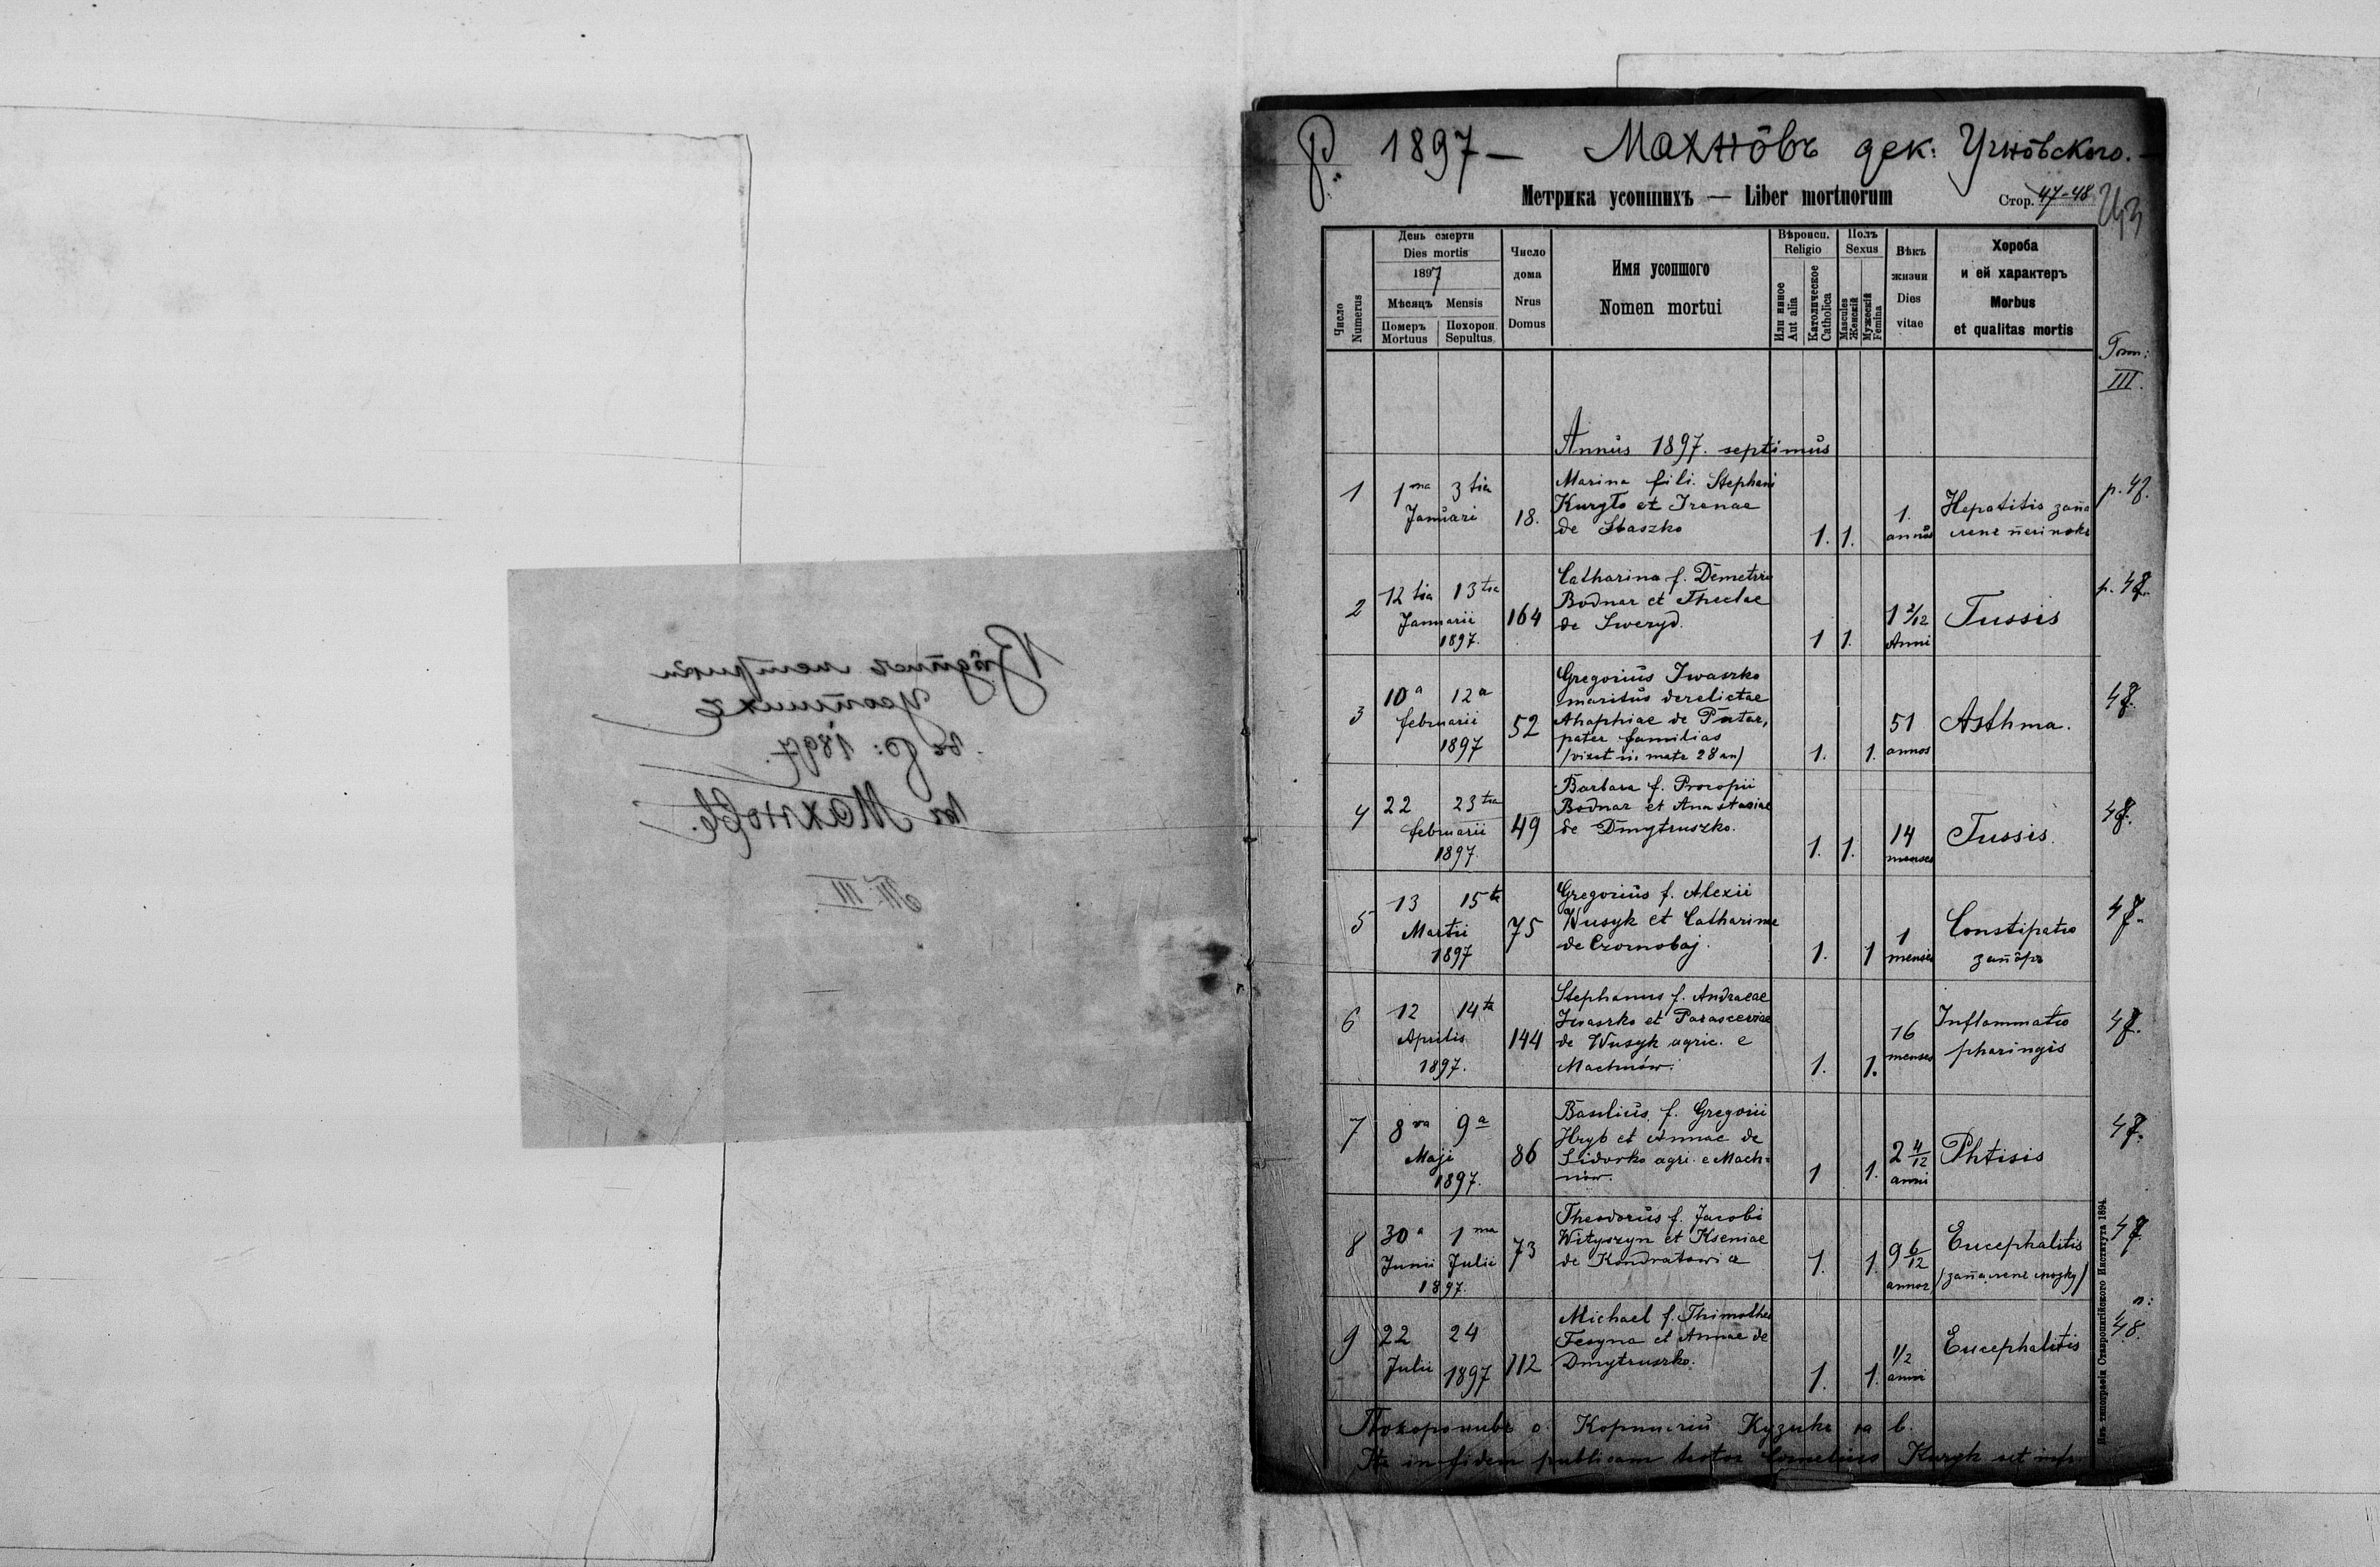 Р. 1897 — Махнôвъ дек: Угнôвского. —
Метрика усопшихъ — Liber mortuorum
Стор. 47-48
Число
Numerus
День смерти
Dies mortis
1897
Мѣсяць Mensis
Померъ
Mortuus
Похорон.
Sepultus
Число
дома
Nrus
Domus
Имя усопшого
Nomen mortui
Вѣроисп.
Religio
Или инное
Aut alia
Католическое
Catholica
Полъ
Sexus
Mascules
Женскій
Мужескій
Femina
Вѣкъ
жизни
Dies
vitae
Хороба
и ей характеръ
Morbus
et qualitas mortis
Tom:
III.
Annus 1897. septimus
1
1 ma 3 tia
Januari
18.
Marina fili. Stephani
Kuryło et Irenae
de Staszko
1. 1.
1.
annus
Hepatitis
p. 47.
2
12 tia 13 tia
Januarii
1897.
164
Catharina f. Demetrii
Bodnar et Theclae
de Sweryd.
1 1.
1 2/12
Anni
Tussis
p. 48.
3
10 a 12 a
februarii
1897
52
Gregorius Iwaszko
maritus derelictae
Ahaphiae de Putar,
pater familias
(vixit in matr 28 an)
1. 1.
51
annos
Asthma.
47.
4
22 23 tia
februarii
1897.
49
Barbara f. Procopii
Bodnar et Anastasiae
de Dmytruszko.
1. 1.
14
menses
Tussis.
48.
5
13 15 ta
Martii
1897
75
Gregorius f. Alexii
Wusyk et Catharinae
de Czornobaj.
1. 1
1
mensis
Constipatio
запôръ
47.
6
12 14 ta
Aprilis
1897.
144
Stephanus f. Andraeae
Iwaszko et Parasceviae
de Wusyk agric. e
Machnów.
1. 1.
16
menses
Inflammatio
pharingis
47.
7
8 va 9 a
Maji
1897.
86
Basilius f. Gregorii
Hryb et Annae de
Sidorko agri. e Mach=
nów.
1 1.
2 4/12
anni
Phtisis
47.
8
30 a 1 ma
Junii Julii
1897.
73
Theodorus f. Jacobi
Wityszyn et Kseniae
de Kondratowicz
1. 1.
9 6/12
annos
Encephalitis
(запалене мозку)
47
9
22 24
Julii 1897
112
Michael f. Thimothei
Fesyna et Annae de
Dmytruszko.
1. 1.
1/2
anni
Encephalitis
p:
48.
Похоронивъ о. Корнилій Кузикъ
Ita in fidem publicam testor Cornelius Kuzyk
Изъ типографіи Ставропигійского Института 1894.
Вôдпис метрики
Усопшихъ
за р: 1897.
въ Махновѣ.
Т. III.